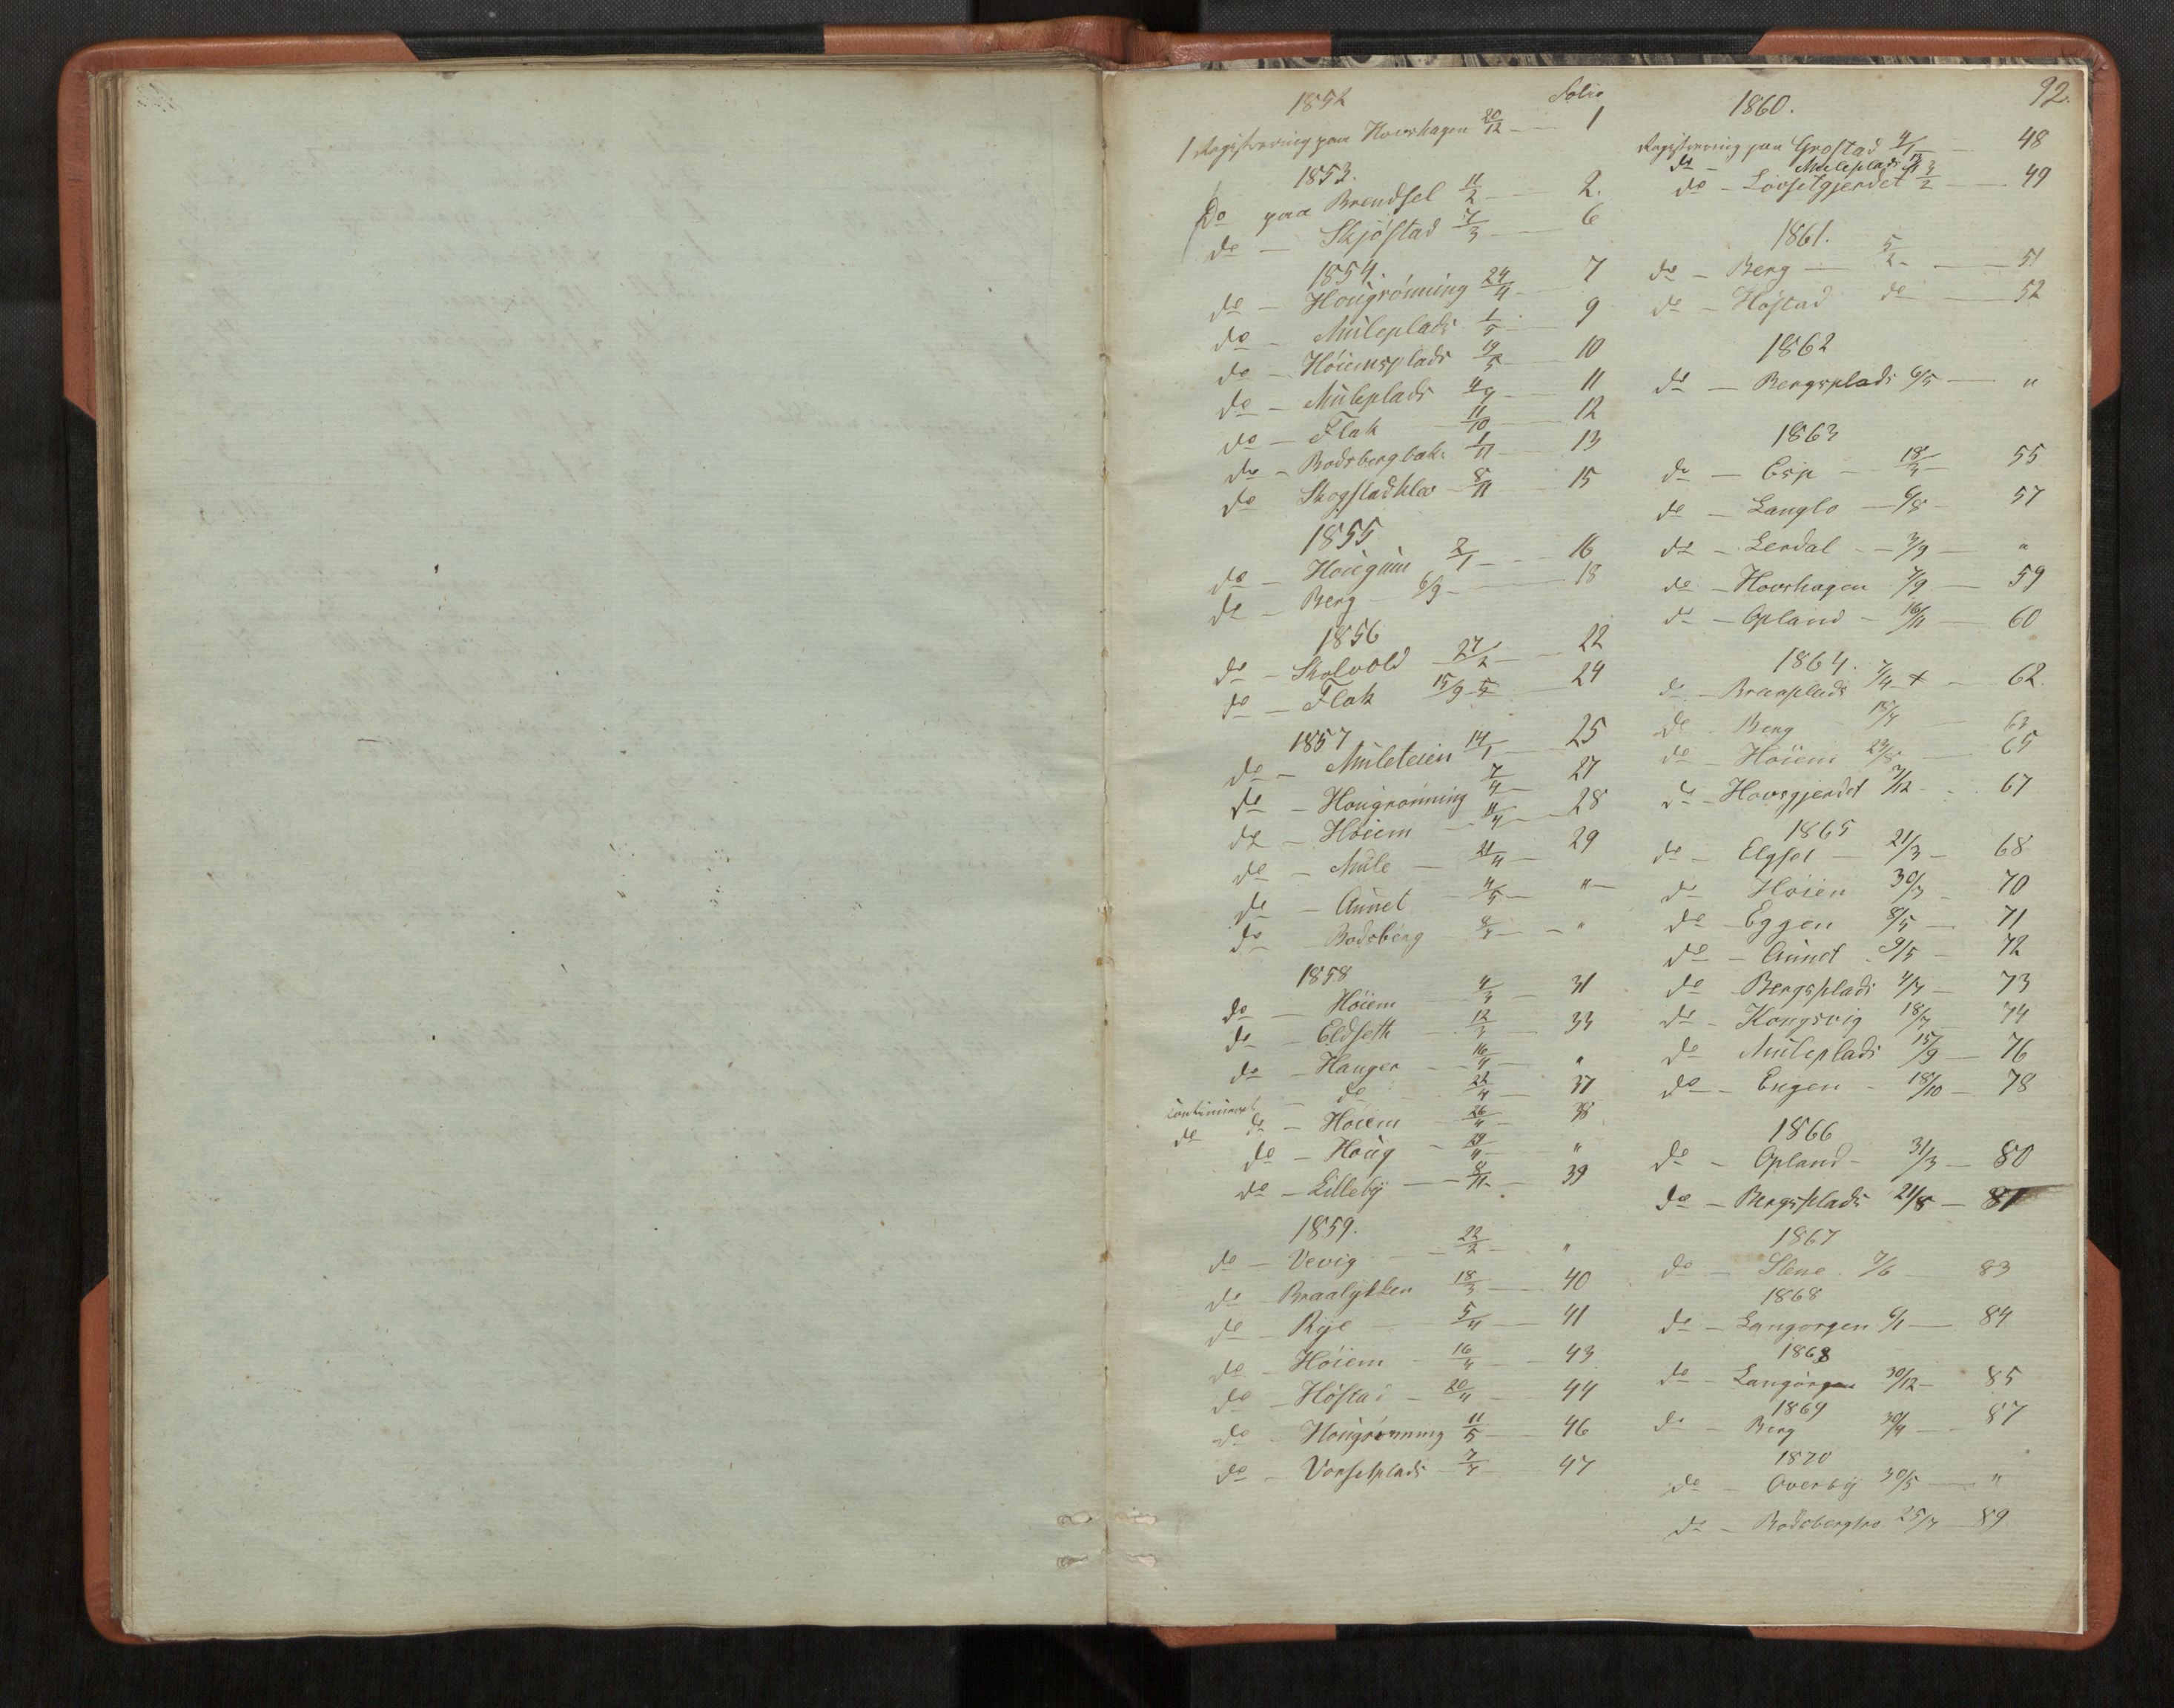 92.
1852 Folio
1 Registrering paa Hovshagen 20/12 — 1
1853.
Do paa Brendsel 11/2 — 2.
do — Skjöstad 7/3 — 6
1854.
do — Hougrönning 24/4 — 7
do — Muleplads 1/5 — 9
do — Höiemsplads 19/5 — 10
do — Muleplads — 11
do — Flak 11/10 — 12
do — Rodsbergbak: 1/11 — 13
do Skogstadklev — 8/11 15
1855
do — Hougum 2/1 — 16
do — Berg — 6/9 — 18
1856
do — Skolvold 27/2 — 22
do — Flak 15/9 — 24
1857
do — Muleteien 14/1 — 25
do — Hougrönning 7/4 — 27
do — Höiem — 11/4 — 28
do — Mule — 21/4 — 29
do — Aunet — 4/5 — "
do — Rodsberg — "
1858
do — Höiem 4/3 — 31
do — Eldseth 12/3 — 33
do — Hanger — 16/4 — "
— do 22/4 — 37
continueret
do do — Höiem — 26/4 — 38
do — Houg — "
do — Lilleby — 8/11 — 39
1859.
do — Vevig — 22/2 — "
do — Braalykken 18/3 — 40
do — Rye — 5/4 — 41
do — Höiem — 16/4 — 43
do — Höstad — 20/4 — 44
do Hougrönning 11/5 — 46
do — Vorsetplads — 47
1860.
Registrering paa Grostad 4/1 — 48
do — Muleplads
do — Lövsetgjerdet 3/2 — 49
1861.
do — Berg — 5/2 — 51
do — Höstad do — 52
1862
do — Bergsplads 6/5 — "
1863
do — Esp — 18/3 — 55
do — Langlo — 6/8 — 57
do — Lerdal — 3/9 — "
do — Hovshagen 7/9 — 59
do — Opland — 16/11 — 60
1864.
do — Braaplads 7/4 — 62.
do Berg — 62
do — Höiem 24/8 — 65
do — Hovsgjerdet 7/12 — 67
1865
do — Elgset — 21/3 — 68
do Höien 30/3 — 70
do — Eggen 8/5 — 71
do — Aunet 9/5 — 72
do Bergsplads 4/7 — 73
do — Kongsvig 18/7 74
do Muleplads 15/9 — 76
do — Engen — 18/10 — 78
1866
do — Opland — 31/3 — 80
do — Bergsplads 21/8 — 81
1867
do — Stene 7/6 83
1868
do — Langorgen 6/1 — 84
1868
do — Langörgen 30/12 — 85
1869
do — Berg 30/4 — 87
1870
do — Overby 30/5 — "
do — Rodsbergtrø 25/7 — 89